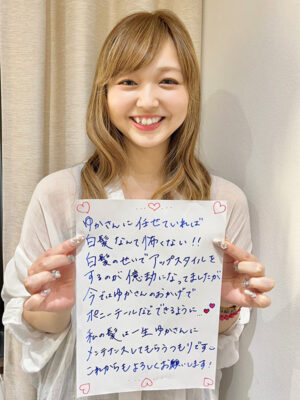 ゆかさんに任せていれば
白髪なんて怖くない!!
白髪のせいでアップスタイルを
するのが億劫になってましたが
今ではゆかさんのおかげで
ポニーテールなどできるように…
私の髪は一生ゆかさんに
メンテナンスしてもらうつもりです
これからもよろしくお願いします!